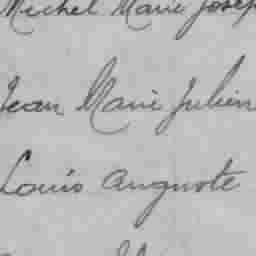 Michel Marie Josep
Jean Marie Julien
Louis Auguste